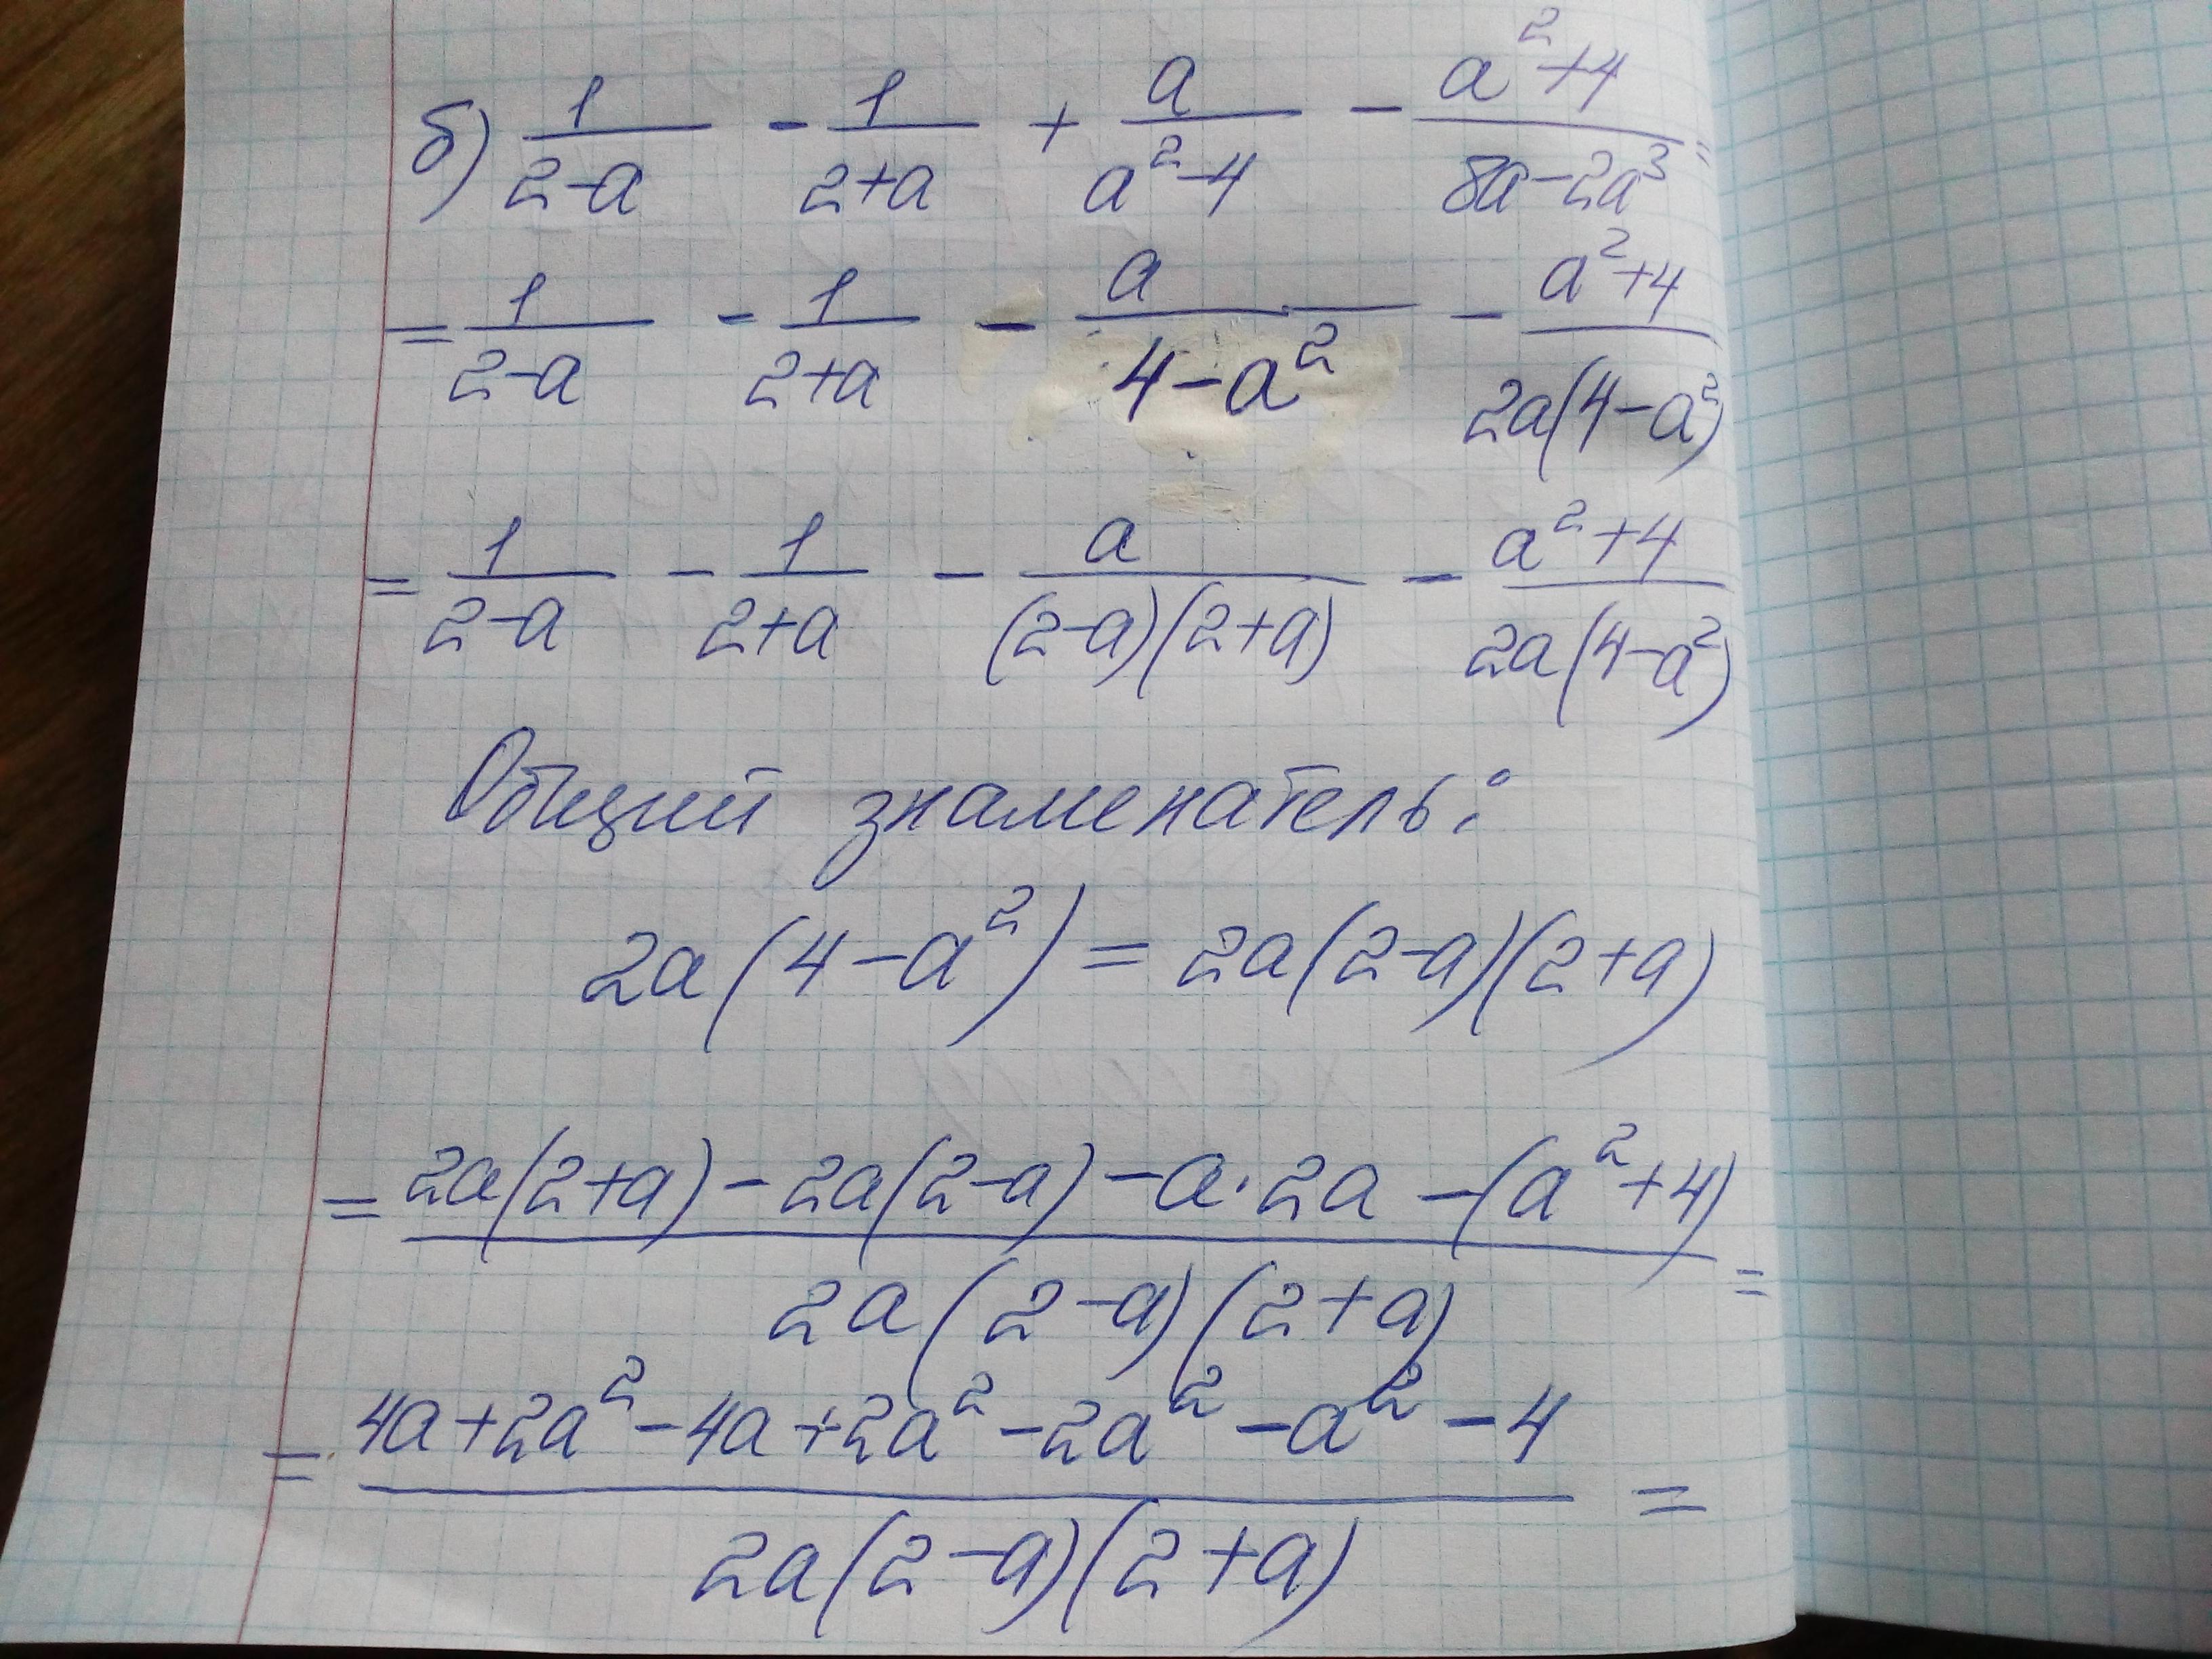 б) 1/(2-a) - 1/(2+a) + a/(a²-4) - (a²+4)/(8a-2a³) =
= 1/(2-a) - 1/(2+a) - a/(4-a²) - (a²+4)/(2a(4-a²))
= 1/(2-a) - 1/(2+a) - a/((2-a)(2+a)) - (a²+4)/(2a(4-a²))
Общий знаменатель:
2a(4-a²) = 2a(2-a)(2+a)
= (2a(2+a) - 2a(2-a) - a·2a - (a²+4))/(2a(2-a)(2+a)) =
= (4a+2a²-4a+2a²-2a²-a²-4)/(2a(2-a)(2+a)) =